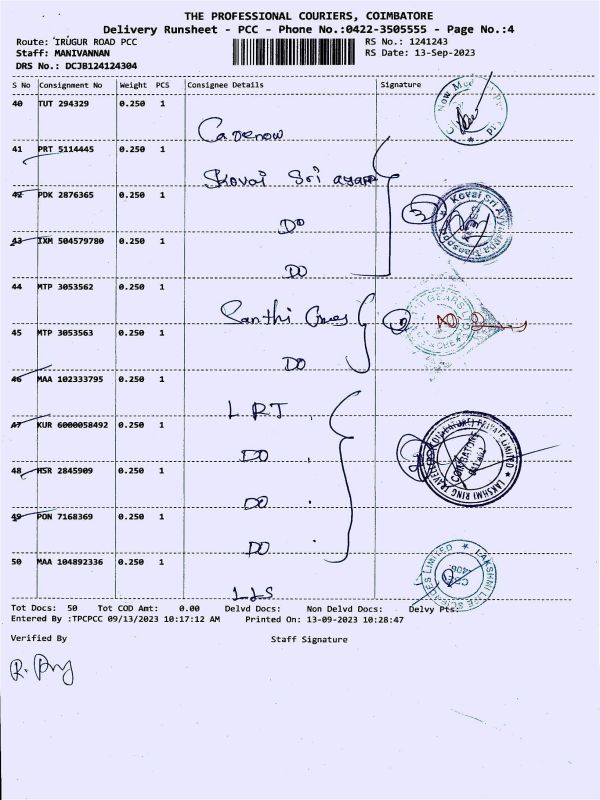 THE PROFESSIONAL COURIERS, COIMBATORE
Delivery Runsheet - PCC - Phone No.:0422-3505555 - Page No.:4
Route: IRUGUR ROAD PCC RS No.: 1241243
Staff: MANIVANNAN RS Date: 13-Sep-2023
DRS No.: DCJB124124304
S No Consignment No Weight PCS Consignee Details Signature
40 TUT 294329 0.250 1
41 PRT 5114445 0.250 1
Kovai Sri
42 PDK 2876365 0.250 1
DO
43 IXM 504579780 0.250 1
DO
44 MTP 3053562 0.250 1
Santhi Gears
45 MTP 3053563 0.250 1
DO
46 MAA 102333795 0.250 1
LRT
47 KUR 6000058492 0.250 1
DO
48 HSR 2845909 0.250 1
DO
49 PON 7168369 0.250 1
DO
50 MAA 104892336 0.250 1
LLS
Kovai Sri
GEARS
COIMBATORE
PRIVATE LIMITED
LAKSHMI RING TRAVELLERS
LAKSHMI LIFE SCIENCES LIMITED
Tot Docs: 50 Tot COD Amt: 0.00 Delvd Docs: Non Delvd Docs: Delvy Pts:
Entered By :TPCPCC 09/13/2023 10:17:12 AM Printed On: 13-09-2023 10:28:47
Verified By Staff Signature